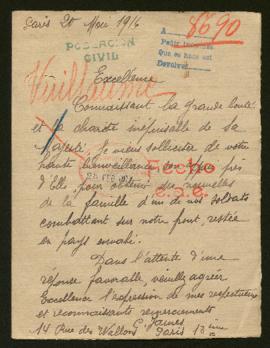 Paris 20 Mai 1916
A
8690
POBLACION
CIVIL
Petit
Que se hace en
Devolver
Excellence
Vuillaume
Connaissant la grande bonté
et la charité inépuisable de sa
Majesté je viens solliciter de votre
haute bienveillance son appui près
d'Elle pour obtenir des nouvelles
Fecho
de la famille d'un de nos soldats
combattant sur notre front, restée
en pays envahi.
Dans l'attente d'une
réponse favorable, veuillez agréer
Excellence l'expression de mes respectueux
et reconnaissants remerciements
G. James
14 Rue des Wallons Paris 13ème